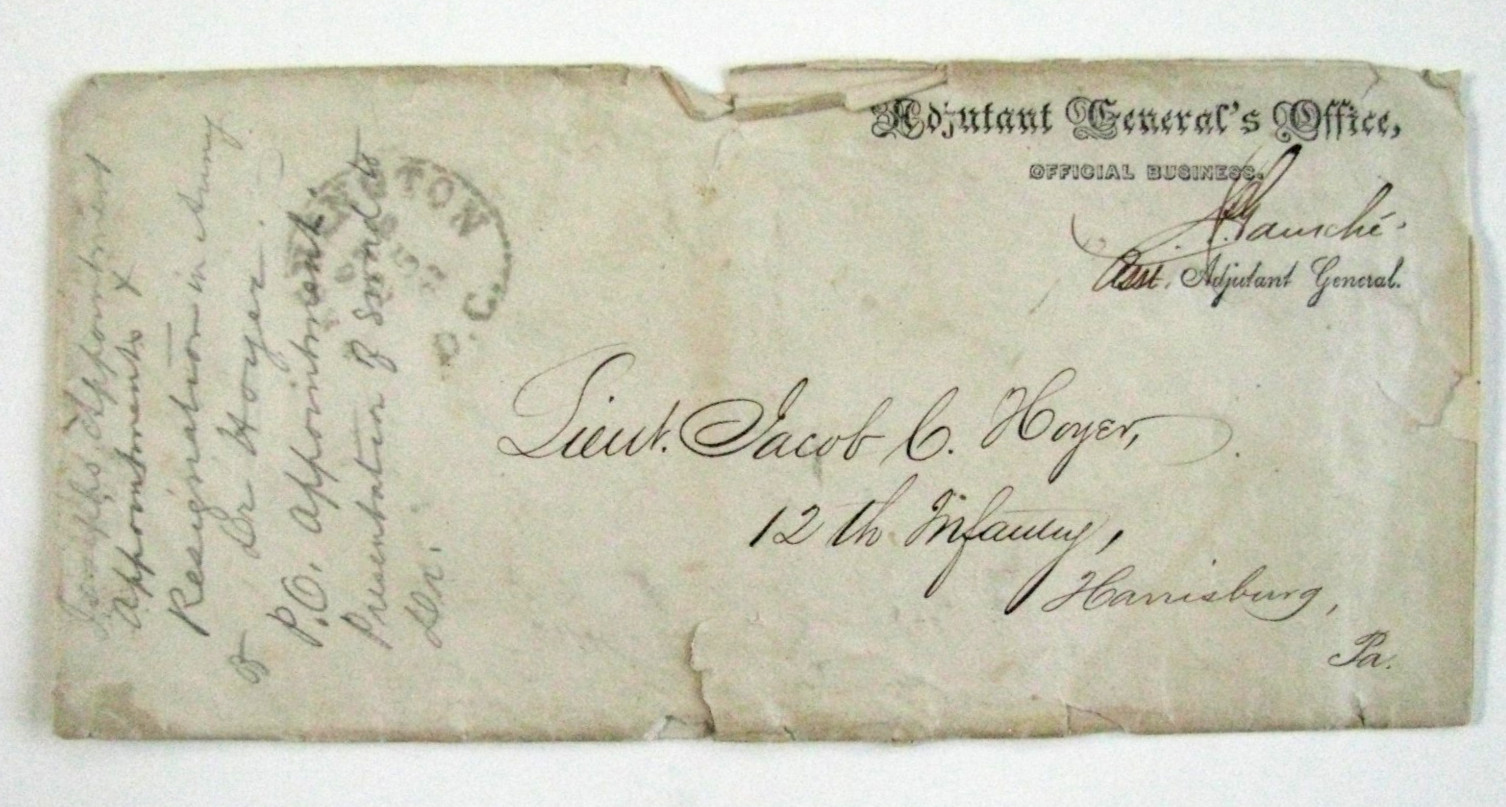 Adjutant General's Office,
OFFICIAL BUSINESS.
Asst. Adjutant General.
Lieut. Jacob C. Hoyer,
12th Infantry,
Harrisburg,
Pa.
INGTON
D.C.
Appointment
appointments &
Resignation in Army
Dr Hoyer
P.O. appointment
Presentation of Sword to
Dr.